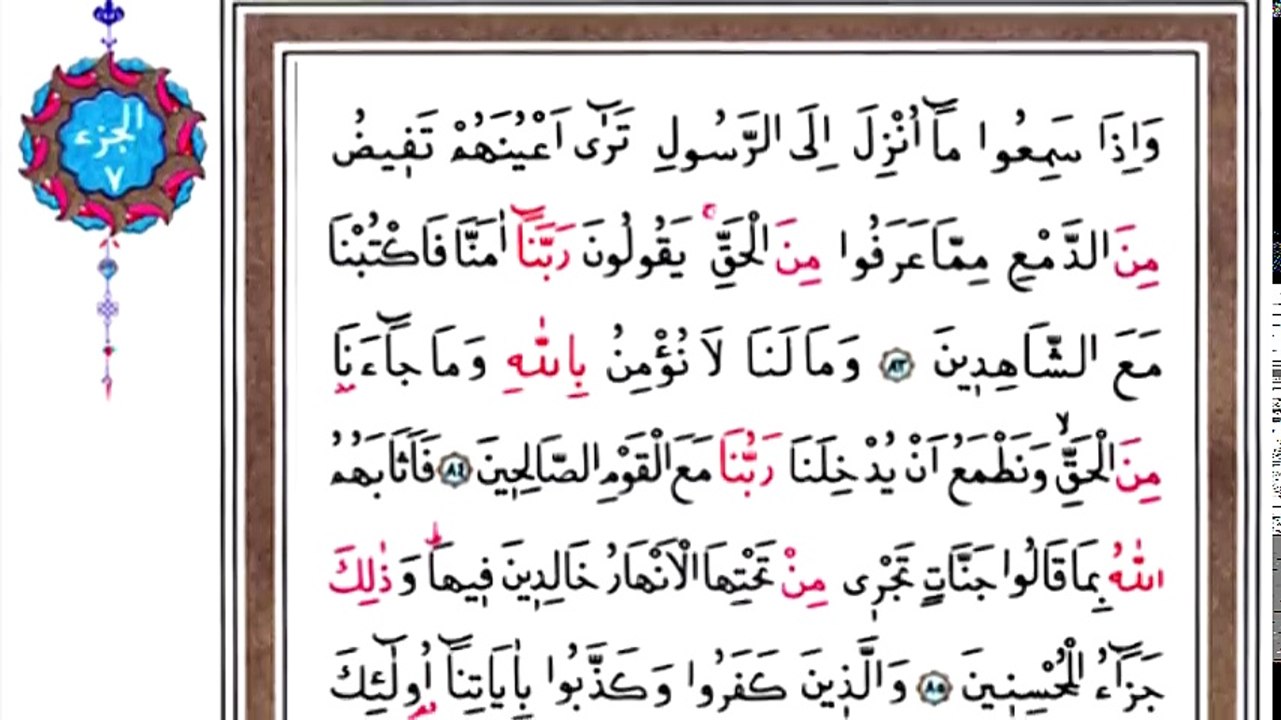 الجزء
٧
وَاِذَا سَمِعُوا مَٓا اُنْزِلَ اِلَى الرَّسُولِ تَرٰٓى اَعْيُنَهُمْ تَفٖيضُ
مِنَ الدَّمْعِ مِمَّا عَرَفُوا مِنَ الْحَقِّۚ يَقُولُونَ رَبَّنَٓا اٰمَنَّا فَاكْتُبْنَا
مَعَ الشَّاهِدٖينَ ٨٣ وَمَا لَنَا لَا نُؤْمِنُ بِاللّٰهِ وَمَا جَٓاءَنَا
مِنَ الْحَقِّۙ وَنَطْمَعُ اَنْ يُدْخِلَنَا رَبُّنَا مَعَ الْقَوْمِ الصَّالِحٖينَ ٨٤ فَاَثَابَهُمُ
اللّٰهُ بِمَا قَالُوا جَنَّاتٍ تَجْرٖى مِنْ تَحْتِهَا الْاَنْهَارُ خَالِدٖينَ فٖيهَاؕ وَذٰلِكَ
جَزَٓاءُ الْمُحْسِنٖينَ ٨٥ وَالَّذٖينَ كَفَرُوا وَكَذَّبُوا بِاٰيَاتِنَٓا اُولٰٓئِكَ